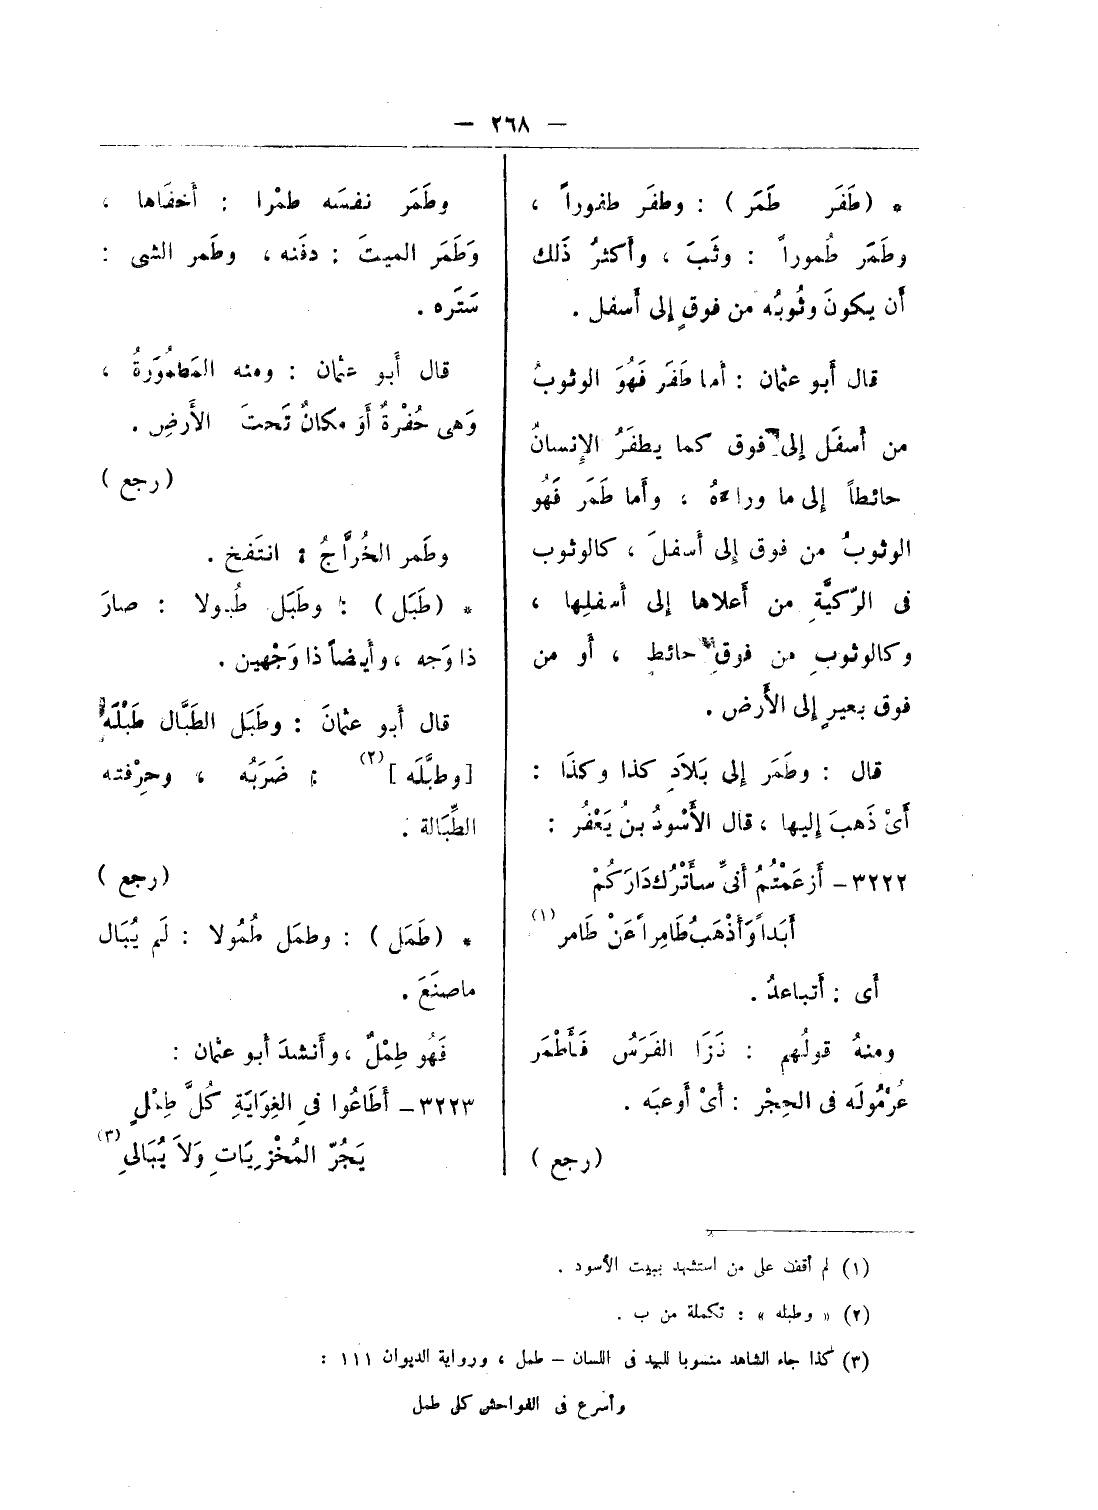 — ٢٦٨ —
* (طَفَر طَمَر) : وطفَر طفوراً ،
وطَمَر طُموراً : وثَبَ ، وأكثرُ ذَلك
أَن يكونَ وثُوبُه من فوقٍ إلى أَسفل .
قال أَبو عثمان : أما طَفَر فَهُوَ الوثوبُ
من أَسفَل إلى فوق كما يطفَرُ الإنسانُ
حائطاً إلى ما وراءهُ ، وأَما طَمَر فَهُو
الوثوبُ من فوق إلى أَسفلَ ، كالوثوب
فى الرّكيَّةِ من أَعلاها إلى أَسفلِها ،
وكالوثوبِ من فوقِ حائطٍ ، أَو من
فوق بعيرٍ إلى الأَرض .
قال : وطَمَر إلى بَلَادِ كذا وكذَا :
أَىْ ذَهبَ إليها ، قال الأَسْودُ بنُ يَعْفُر :
٣٢٢٢ – أَزعَمْتُمُ أَنىِّ سأَتْرُك دَارَكُمْ
أَبَداً وَأَذْهَبُ طَامِراً عَنْ طَامر (١)
أَى : أَتباعدُ .
ومنهُ قولُهم : نَزَا الفَرَسُ فَأَطْمَر
غُرْمُولَه فى الحِجْر : أَىْ أَوعبَه .
(رجع )
وطَمَر نفسَه طمْرا : أَخفَاها ،
وَطَمَرَ الميتَ : دفَنه ، وطَمر الشى :
سَتَره .
قال أَبو عثمان : ومنه المَطمُورَةُ ،
وَهى حُفْرةٌ أَو مكانٌ تَحتَ الأَرضِ .
(رجع )
وطَمر الخُرَّاجُ : انتَفخ .
* (طَبَل) : وطَبَل طُبولا : صارَ
ذا وَجه ، وأَيضاً ذا وَجْهين .
قال أَبو عثمانَ : وطَبَل الطَبَّال طَبْلَه
[وطبَّلَه] (٢) : ضَرَبُه ، وحِرْفته
الطِّبَالة .
(رجع )
* (طَمَل) : وطمَل طُمُولا : لَم يُبَال
ماصنَعَ .
فَهُو طِمْلٌ ، وأَنشدَ أَبو عثمان :
٣٢٢٣ – أَطَاعُوا فىِ الغِوَايَةِ كُلَّ طِمْلٍ
يَجُرّ المُخْزِيَاتِ وَلاَ يُبَالىِ (٣)
(١) لم أقف على من استشهد ببيت الأسود .
(٢) « وطبله » : تكملة من ب .
(٣) كذا جاء الشاهد منسوبا للبيد فى اللسان – طمل ، ورواية الديوان ١١١ :
وأسرع فى الفواحش كل طمل